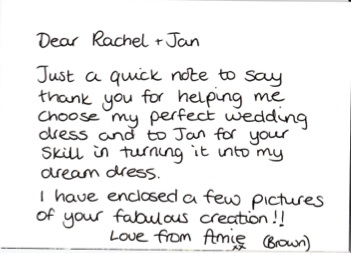 Dear Rachel + Jan
Just a quick note to say
thank you for helping me
choose my perfect wedding
dress and to Jan for your
skill in turning it into my
dream dress.
I have enclosed a few pictures
of your fabulous creation!!
Love from Amie (Brown)
xx